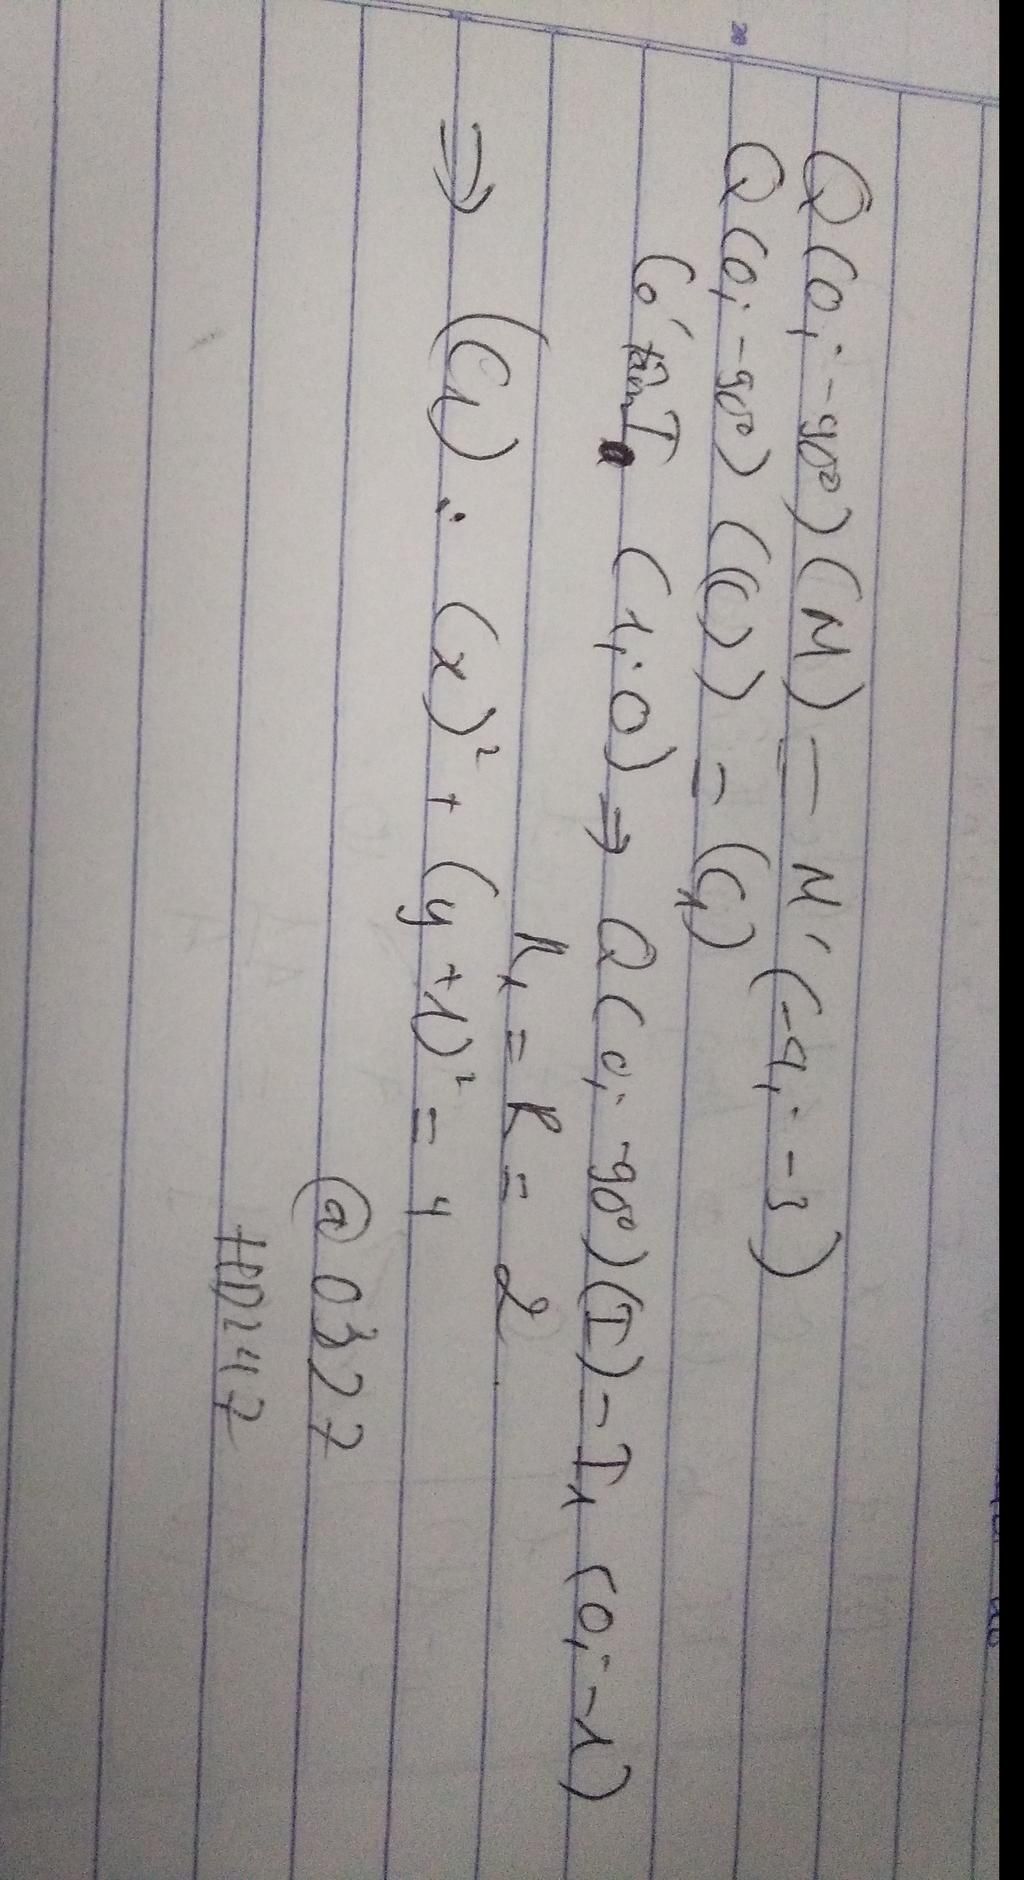 Q(O; -90°)(M) = M' (-4; -3)
Q(O; -90°)((C)) = (C₁)
Có tâm I (1; 0) → Q(O; -90°)(I) = I₁ (0; -1)
R₁ = R = 2
⇒ (C₁) : (x)² + (y + 1)² = 4
@ 0327
HD247
20